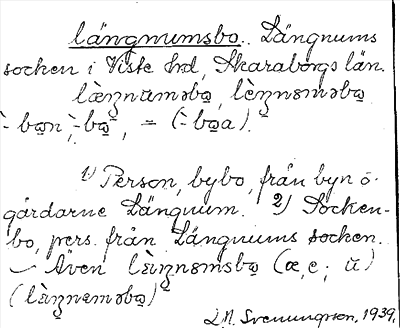 längnumsbo. Längnums
socken i Viste hd, Skaraborgs län.
læ̀ŋnūməbo̱, lèŋnɞməbo̱
-̀ bo̱n, -̀ bo̱, = (-̀ bo̱a).
1) Person, bybo, från byn o.
gårdarne Längnum. 2) Socken-
bo, pers. från Längnums socken.
– Även lèŋnɞmsbo̱ (æ, e; ū)
(lèŋnɞməbo̱)
L.M. Svenungson, 1939.